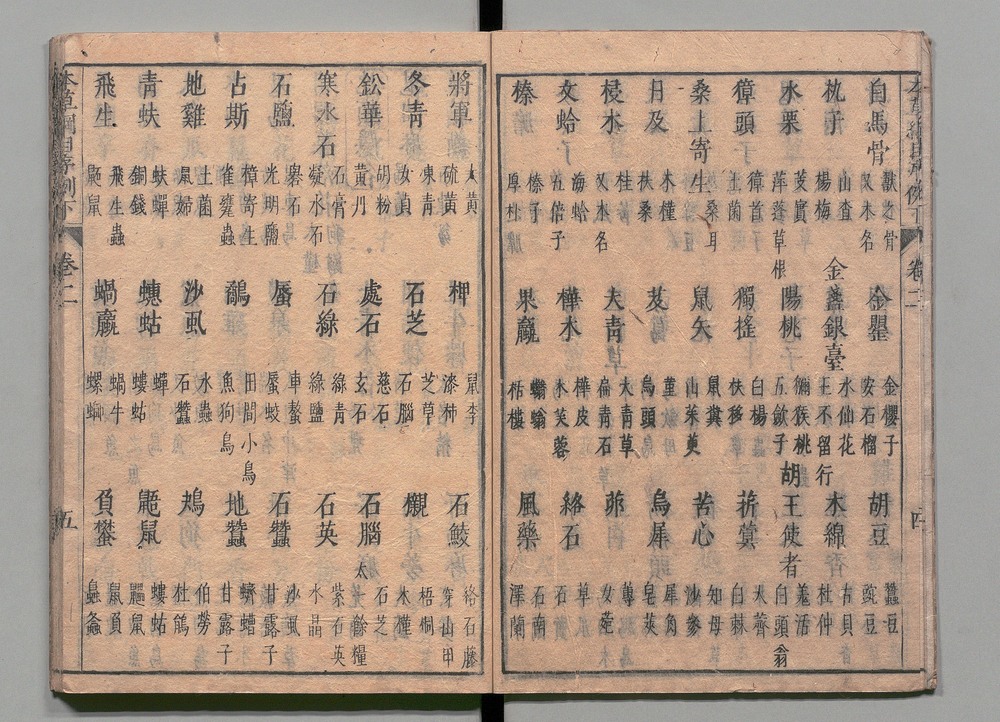 本草綱目序例下 卷二 四
自馬骨 獸之骨 又木名 金罌 金櫻子 安石榴 胡豆 蠶豆 豌豆
杬子 山査 楊梅 金盞銀臺 水仙花 王不留行 木綿 古貝 杜仲
水栗 芰實 萍蓬草根 陽桃 獼猴桃 五歛子 胡王使者 羗活 白頭翁
獐頭 獐首 土菌 獨搖 白楊 扶栘 菥蓂 大薺 白棘
桑上寄生 桑耳 鼠矢 鼠糞 山茱萸 苦心 知母 沙參
日及 木槿 扶桑 芨 菫 烏頭 烏犀 犀角 皂莢
梫木 桂 又木名 大青 大青草 扁青石 茆 蓴 女菀
文蛤 海蛤 五倍子 樺木 樺皮 木芙蓉 絡石 草 石
榛 榛子 厚朴 果蠃 蠮螉 栝樓 風藥 石南 澤蘭
將軍 大黃 硫黃 柙 鼠李 漆柿 石鯪 絡石藤 穿山甲
冬青 凍青 女貞 石芝 芝草 石腦 櫬 梧桐 木槿
鈆華 胡粉 黃丹 處石 慈石 玄石 石腦 石芝 太一餘糧
寒水石 石膏 凝水石 石綠 綠青 綠鹽 石英 紫石英 水晶
石鹽 光明鹽 礜石 蜃 車螯 蜃蛟 石蠶 沙虱 甘露子
占斯 樟寄生 雀甕蟲 鷸 田間小鳥 魚狗鳥 地蠶 蠐螬 甘露子
地雞 土菌 鼠婦 沙虱 水蟲 石蠶 鴆 伯勞 杜鵑
青蚨 蚨蟬 銅錢 蟪蛄 蟬 螻蛄 鼫鼠 螻蛄 鼯鼠
飛生 飛生蟲 鼯鼠 蝸蠃 蝸牛 螺螄 負蠜 鼠負 螽
本草綱目序例下 卷二 五